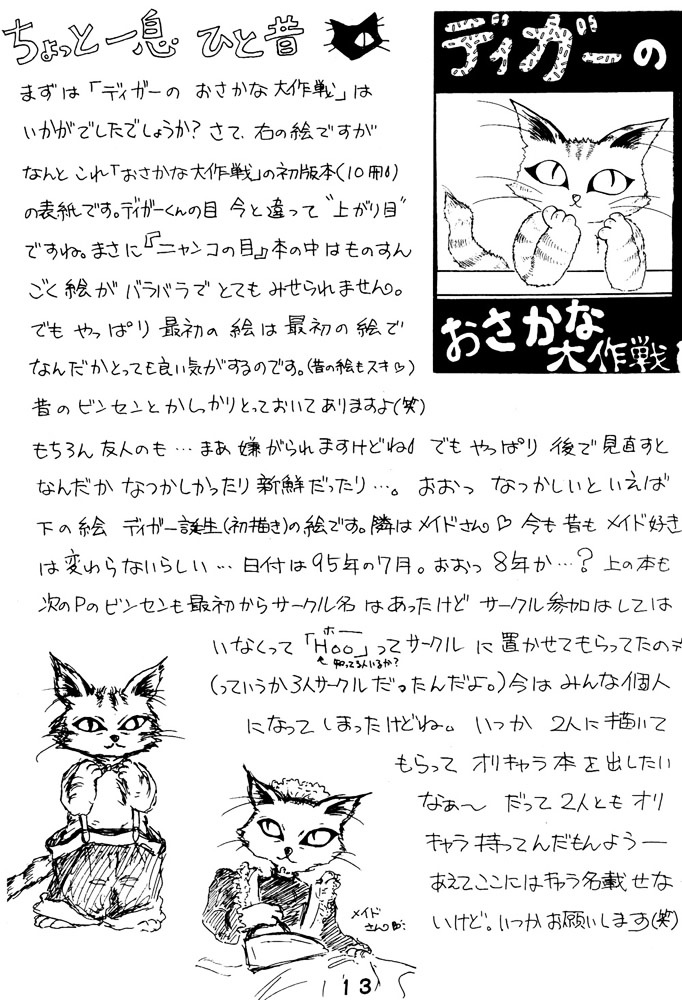 ちょっと一息 ひと昔
ディガーの
おさかな
大作戦
まずは「ディガーの おさかな大作戦」は
いかがでしたでしょうか？さて、右の絵ですが
なんと これ「おさかな大作戦」の初版本(10冊!)
の表紙です。ディガーくんの目 今と違って“上がり目”
ですね。まさに『ニャンコの目』本の中はものすん
ごく絵が バラバラで とても みせられません。
でも やっぱり 最初の 絵は 最初の 絵で
なんだかとっても良い気がするのです。(昔の絵もスキ♡)
昔のビンセンとかしっかりとっておいてありますよ(笑)
もちろん友人のも…まあ嫌がられますけどね! でも やっぱり 後で見直すと
なんだか なつかしかったり 新鮮だったり…。 おおっ なつかしいといえば
下の絵 ディガー誕生(初描き)の絵です。隣はメイドさん♡ 今も昔も メイド好き
は変わらないらしい… 日付は95年の7月。おおっ 8年か…？ 上の本も
次のPのビンセンも最初からサークル名 はあったけど サークル参加はしては
いなくって「Hoo」ってサークル に置かせてもらってたの
ホー
↑知ってる人いるか？
(っていうか3人サークルだったんだよ。)今は みんな個人
になって しまったけどね。 いつか 2人に描いて
もらって オリキャラ本を出したい
なぁ〜 だって2人とも オリ
キャラ持ってんだもんよう―
あえてここにはキャラ名載せな
いけど。いつかお願いします(笑)
メイド
さん
13